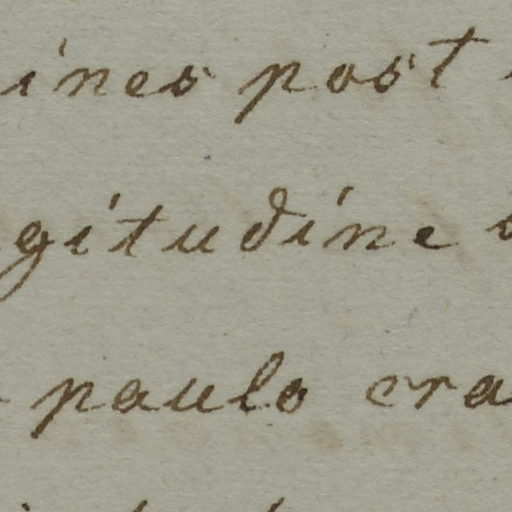 ines post
gitudine
paulo cra